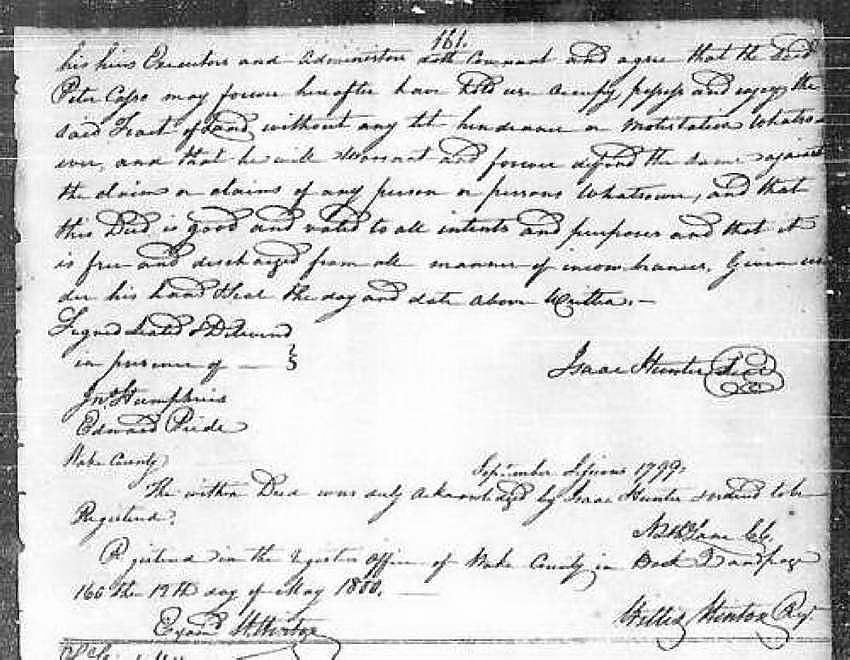 161.
his heirs Executors and Administors doth Covenant and agree that the said
Peter Capes may forever hereafter have hold use occupy, possess and enjoy the
said Tract of Land, without any let hinderance or molestation whatso-
ever, and that he will warrant and forever defend the same against
the claim or claims of any person or persons whatsoever, and that
this Deed is good and valed to all intents and purposes and that it
is free and discharged from all manner of incombrances. Given un
der his hand & seal the day and date above Written. —
Signed Sealed & Delivered
in presence of —
Isaac Hunter Seal
Jno. Humphries
Edward Pride
Wake County
September Sessions 1799.
The within Deed was duly acknowledged by Isaac Hunter & ordered to be
Registered.
Lane CC.
Registered in the registers office of Wake County in Book and page
160 the 12th day of May 1800. —
Willis Hinton Regr.
Examd